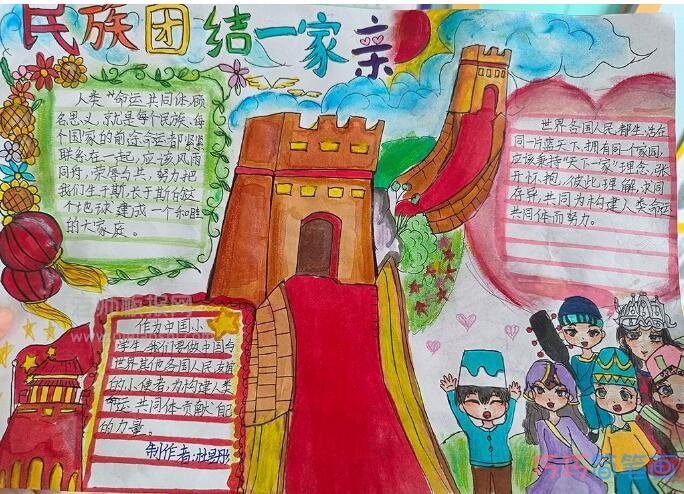 民族团结一家亲
人类“命运共同体,顾
名思义,就是每个民族、每
个国家的前途命运都紧紧
联系在一起,应该风雨
同舟,荣辱与共,努力把
我们生于斯、长于斯的这
个地球建成一个和睦
的大家庭。
世界各国人民都生活在
同一片蓝天下,拥有同一个家园,
应该秉持“天下一家”理念,张
开怀抱,彼此理解,求同
存异,共同为构建人类命运
共同体而努力。
作为中国小
学生,我们要做中国与
世界其他各国人民友谊
的小使者,为构建人类
命运共同体贡献自己
的力量。
制作者:杜
简笔画